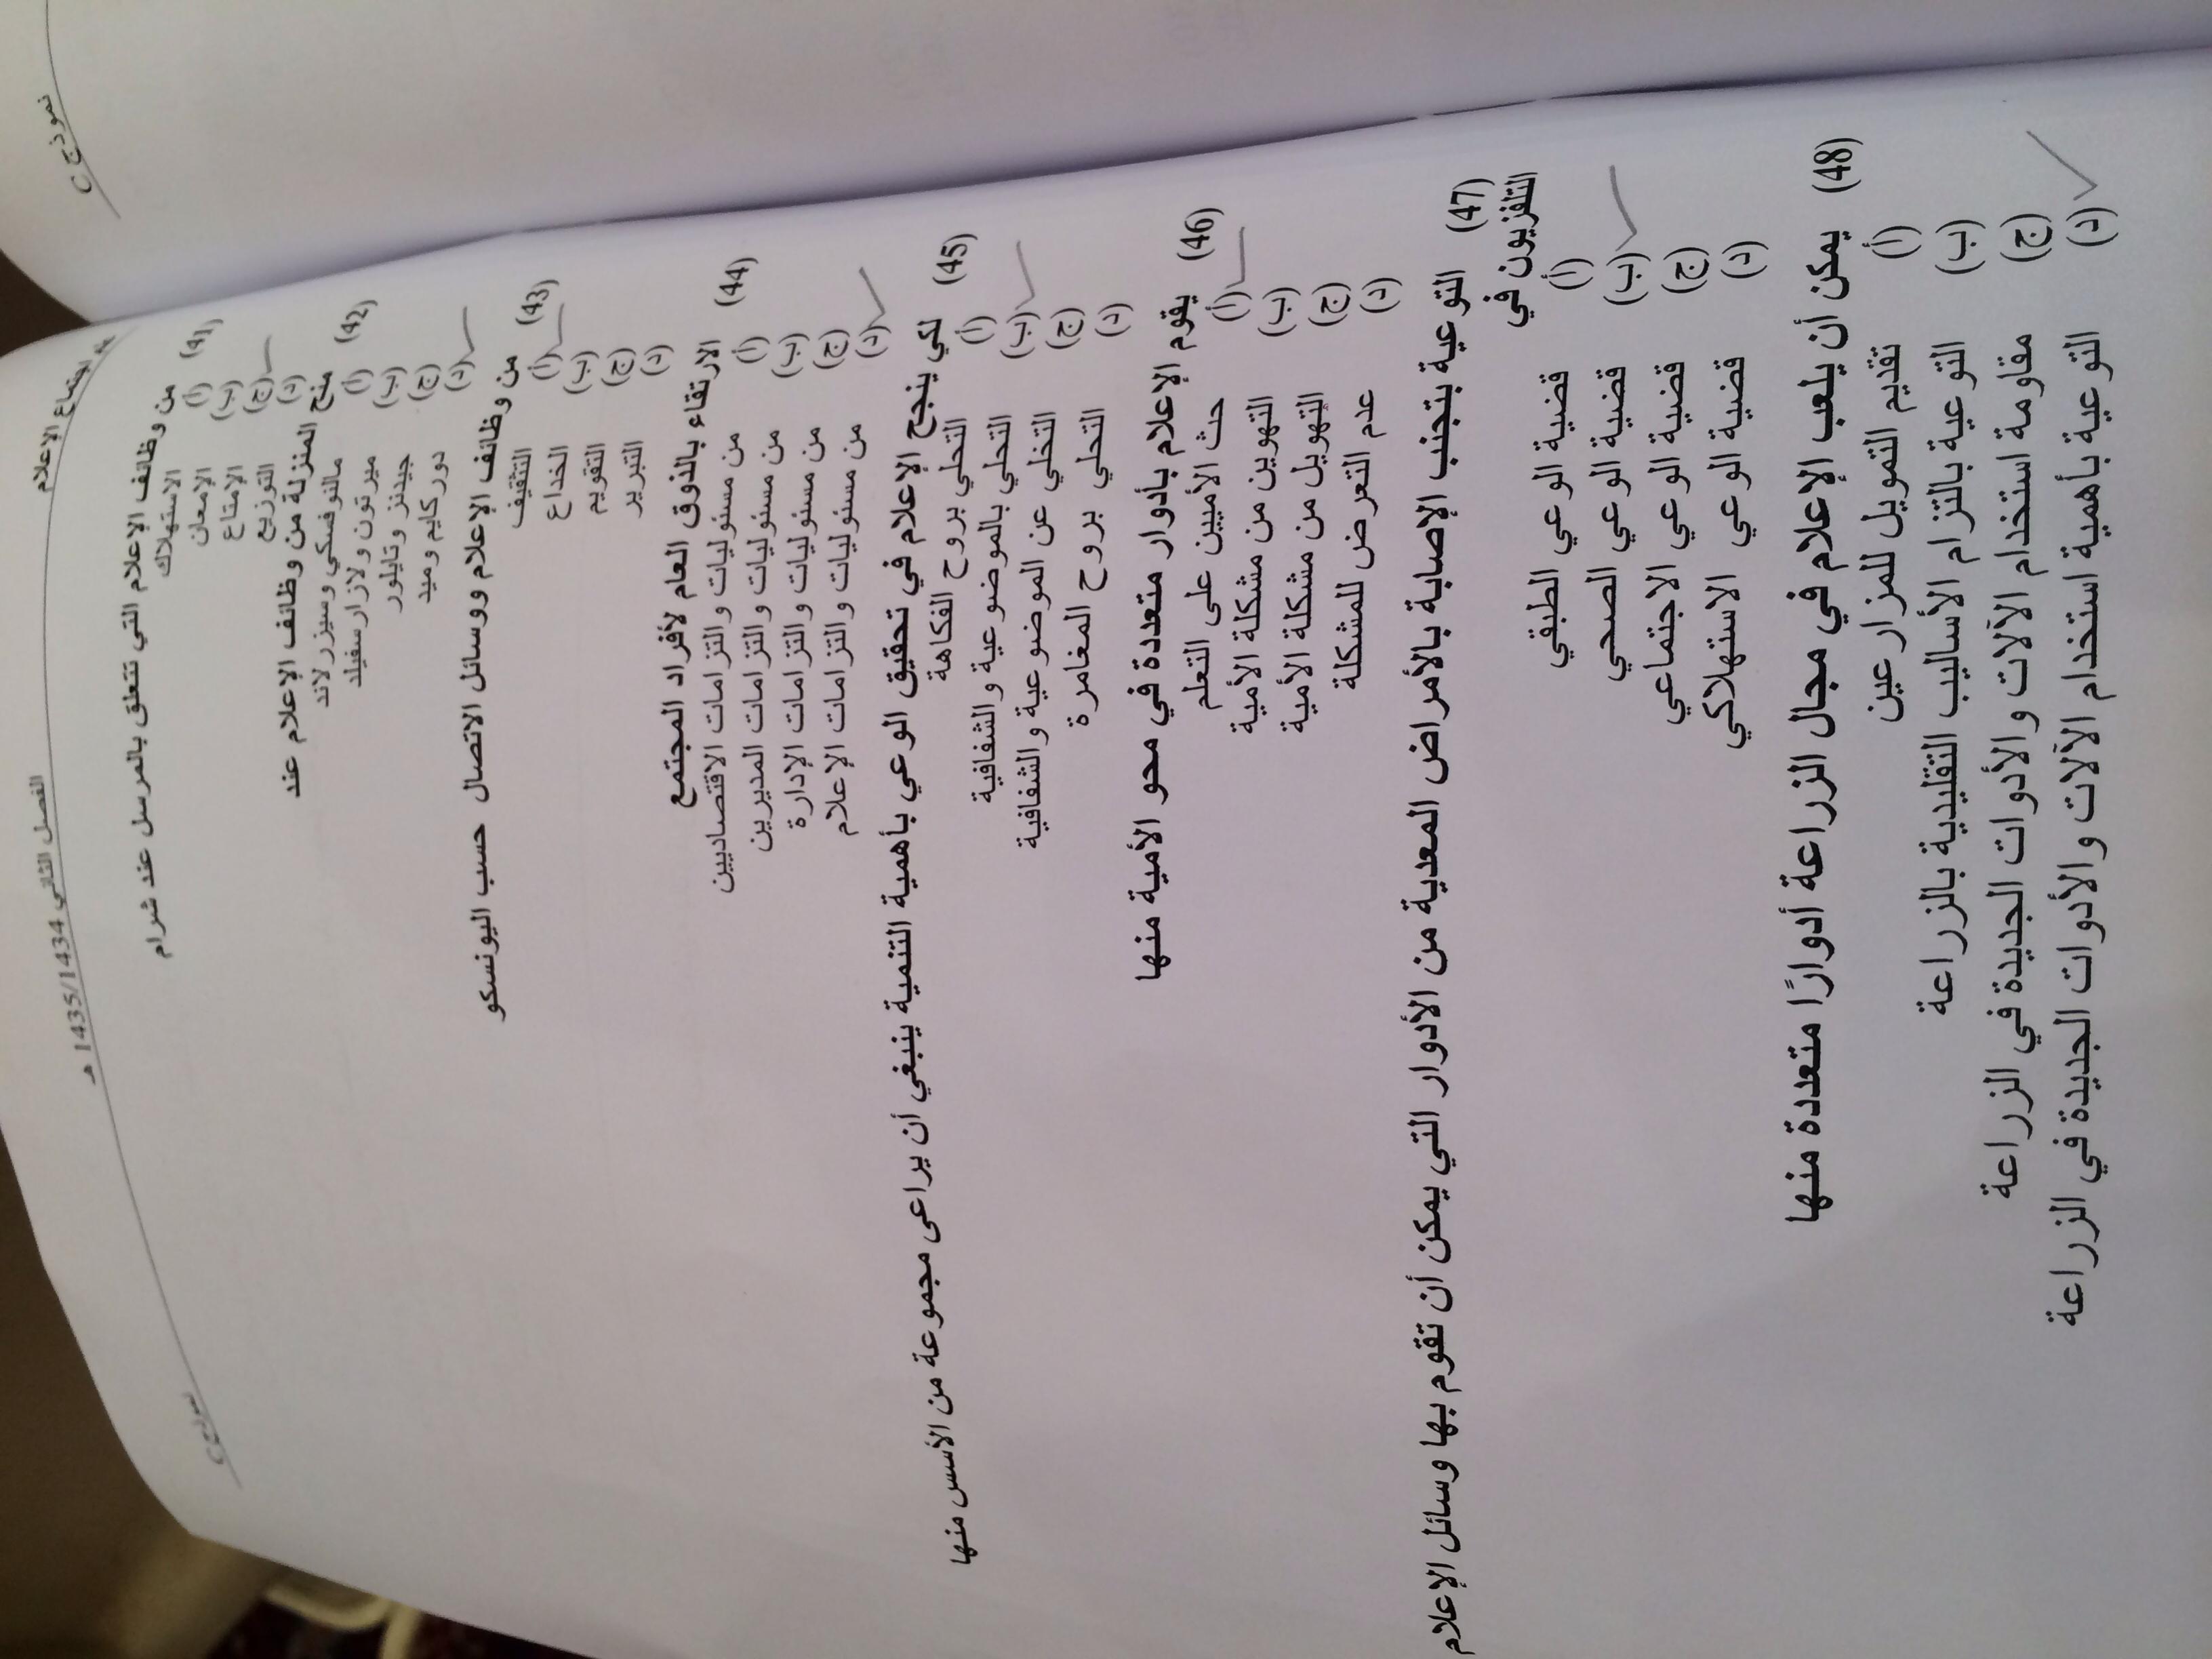 علم اجتماع الإعلام
الفصل الثاني 1435/1434 هـ
نموذج C
(41) من وظائف الإعلام التي تتعلق بالمرسل عند شرام
(أ) الاستهلاك
(ب) الإمعان
(ج) الإمتاع
(د) التوزيع
(42) منح المنزلة من وظائف الإعلام عند
(أ) مالنوفسكي وسيزرلاند
(ب) ميرتون ولازارسفيلد
(ج) جيدنز وتايلور
(د) دوركايم وميد
(43) من وظائف الإعلام ووسائل الاتصال حسب اليونسكو
(أ) التثقيف
(ب) الخداع
(ج) التقويم
(د) التبرير
(44) الارتقاء بالذوق العام لأفراد المجتمع
(أ) من مسئوليات والتزامات الاقتصاديين
(ب) من مسئوليات والتزامات المديرين
(ج) من مسئوليات والتزامات الإدارة
(د) من مسئوليات والتزامات الإعلام
(45) لكي ينجح الإعلام في تحقيق الوعي بأهمية التنمية ينبغي أن يراعى مجموعة من الأسس منها
(أ) التحلي بروح الفكاهة
(ب) التحلي بالموضوعية والشفافية
(ج) التخلي عن الموضوعية والشفافية
(د) التحلي بروح المغامرة
(46) يقوم الإعلام بأدوار متعددة في محو الأمية منها
(أ) حث الأميين على التعلم
(ب) التهوين من مشكلة الأمية
(ج) التهويل من مشكلة الأمية
(د) عدم التعرض للمشكلة
(47) التوعية بتجنب الإصابة بالأمراض المعدية من الأدوار التي يمكن أن تقوم بها وسائل الإعلام
التلفزيون في
(أ) قضية الوعي الطبقي
(ب) قضية الوعي الصحي
(ج) قضية الوعي الاجتماعي
(د) قضية الوعي الاستهلاكي
(48) يمكن أن يلعب الإعلام في مجال الزراعة أدوارًا متعددة منها
(أ) تقديم التمويل للمزارعين
(ب) التوعية بالتزام الأساليب التقليدية بالزراعة
(ج) مقاومة استخدام الآلات والأدوات الجديدة في الزراعة
(د) التوعية بأهمية استخدام الآلات والأدوات الجديدة في الزراعة
نموذج C